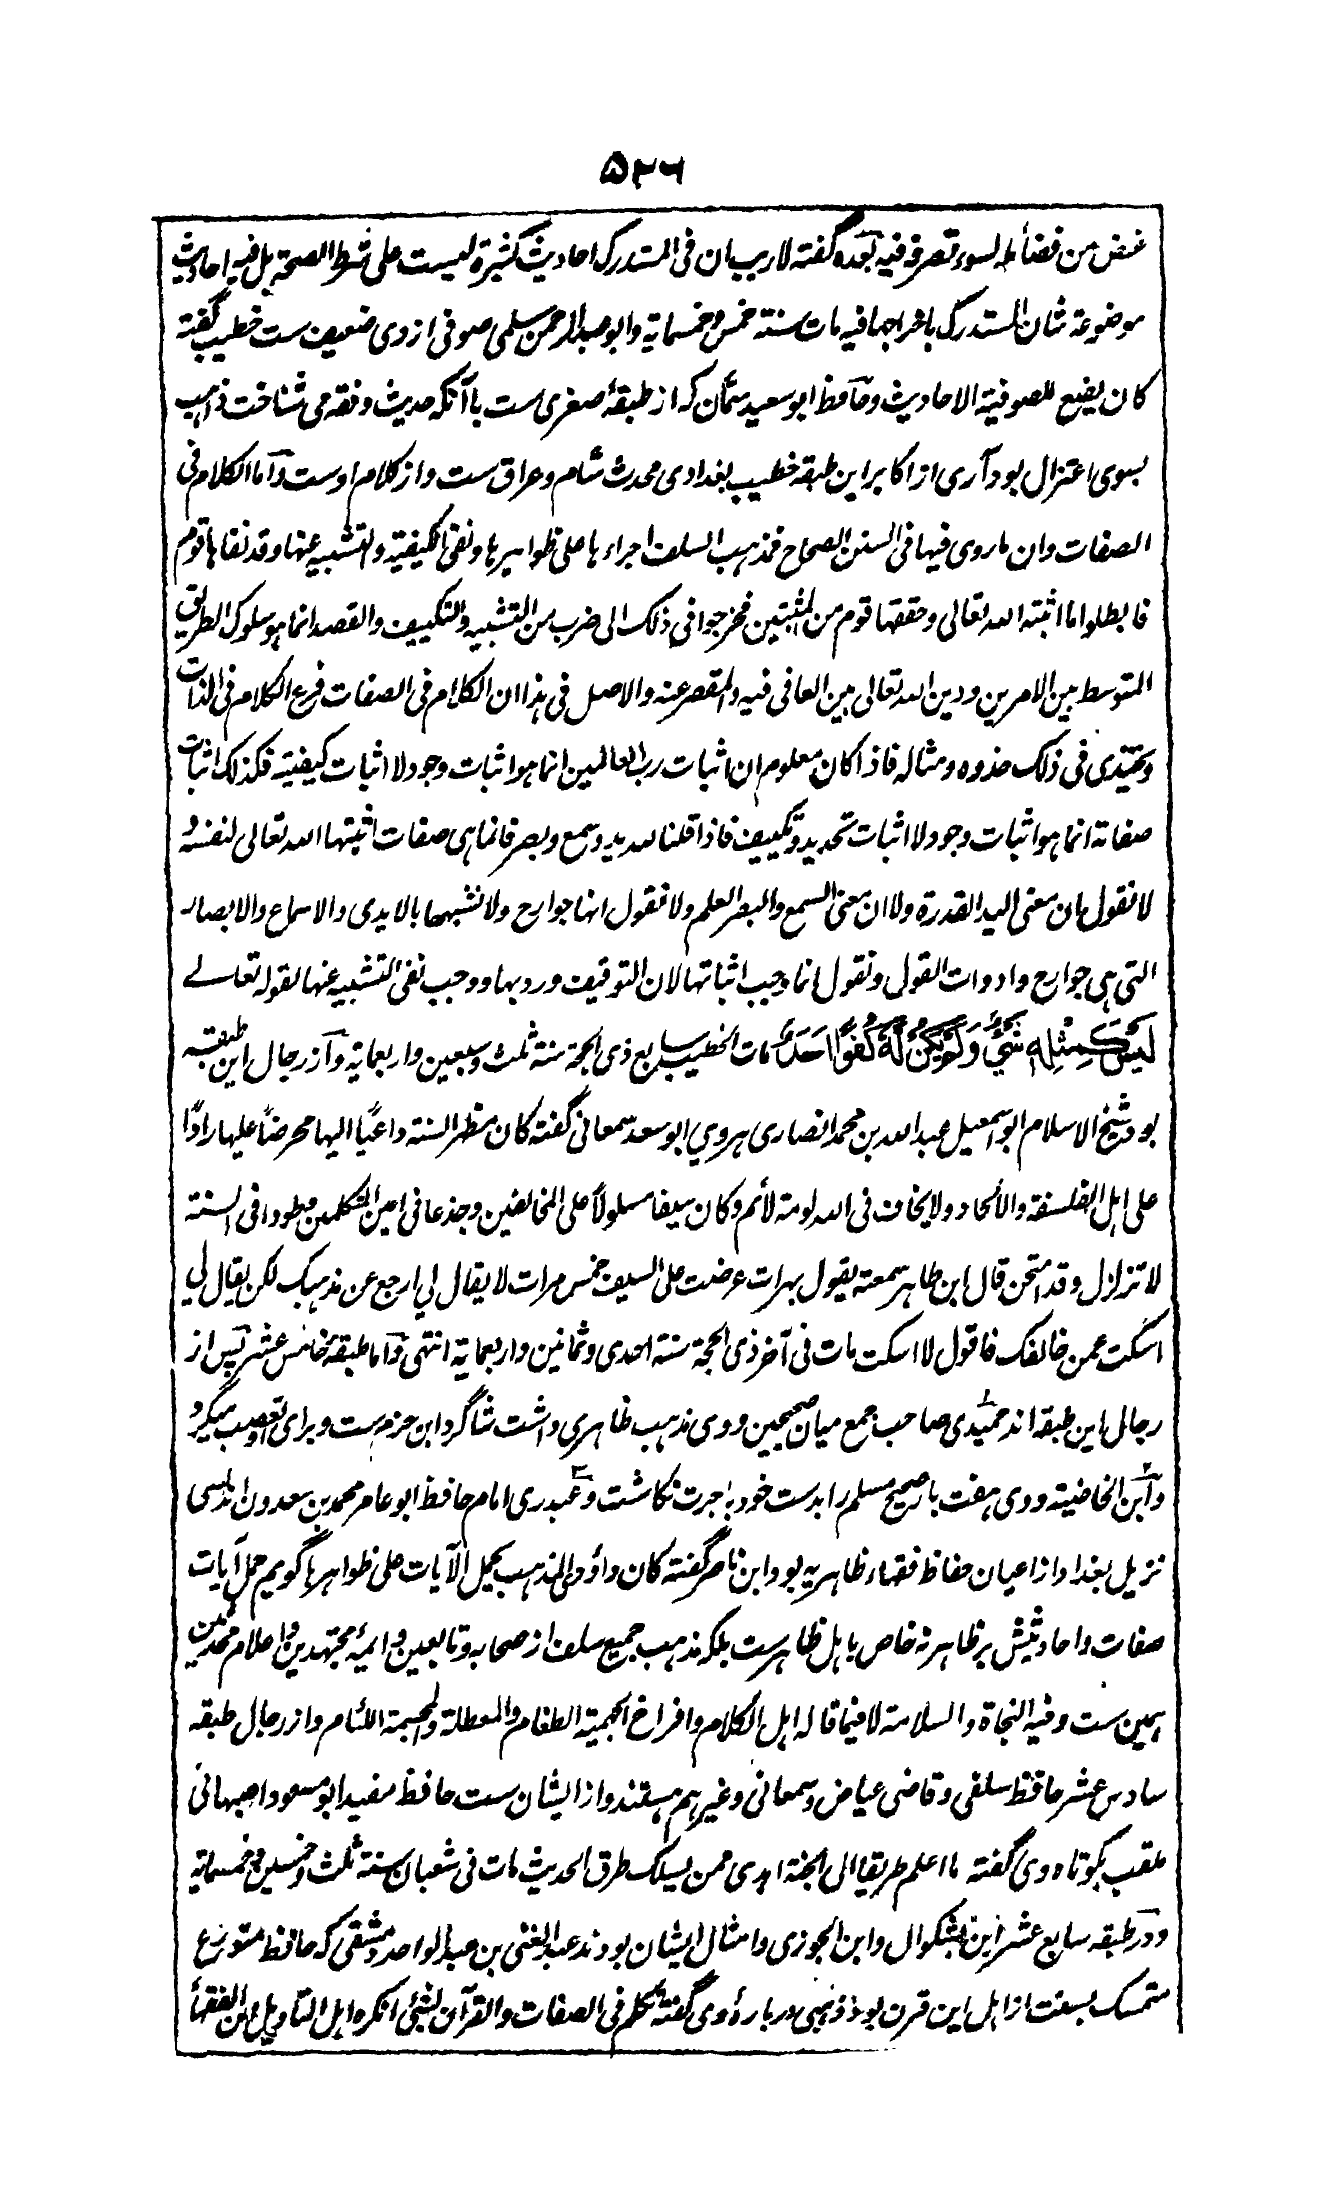 ۵۲۶
غض من فضائله لسوء تصرفه فیه بعده گفته لاریب ان فی المستدرک احادیث کثیرة لیست علی شرط الصحة بل فیه احادیث
موضوعة شان المستدرک باخراجها فیه مات سنة خمس و خمسمایة وابو عبدالرحمن سلمی صوفی ازدی ضعیف ست خطیب گفته
کان یضع للصوفیة الاحادیث و حافظ ابو سعید سمّان که از طبقهٔ صغری ست با آنکه حدیث و فقه می شناخت ذاهب
بسوی اعتزال بود آری از اکابر این طبقه خطیب بغدادی محدث شام و عراق ست و از کلام اوست و اما الکلام فی
الصفات وان ما روی فیها فی السنن الصحاح فمذهب السلف اجراءها علی ظواهرها و نفی الکیفیة والتشبیه عنها وقد نفاها قوم
فابطلوا ما اثبته الله تعالی وحققها قوم من المثبتین فخرجوا فی ذلک الی ضرب من التشبیه والتکییف والقصد انما هو سلوک الطریق
المتوسط بین الامرین ودین الله تعالی بین الغافی فیه والمقصر عنه والاصل فی هذا ان الکلام فی الصفات فرع الکلام فی الذات
ویحتذی فی ذلک حذوه ومثاله فاذا کان معلوم ان اثبات رب العالمین انما هو اثبات وجود لا اثبات کیفیة فکذلک اثبات
صفاته انما هو اثبات وجود لا اثبات تحدید وتکییف فاذا قلنا لله ید وسمع وبصر فانما هی صفات اثبتها الله تعالی لنفسه و
لا نقول ان معنی الید القدرة ولا ان معنی السمع والبصر العلم ولا نقول انها جوارح ولا نشبهها بالایدی والاسماع والابصار
التی هی جوارح وادوات القول ونقول انما وجب اثباتها لان التوقیف ورد بها ووجب نفی التشبیه عنها لقوله تعالے
لَیْسَ کَمِثْلِهٖ شَیْءٌ وَلَمْ یَکُنْ لَّهٗ کُفُوًا اَحَدٌ مات الخطیب سابع ذی الحجة سنة ثلث وسبعین واربعمایة و از رجال این طبقه
بود شیخ الاسلام ابو اسمعیل عبد الله بن محمد انصاری هروی ابو سعد سمعانی گفته کان مظهر السنة داعیًا الیها محرضاً علیها رادًا
علی اهل الفلسفة والالحاد ولا یخاف فی الله لومة لائم وکان سیفا مسلولاً علی المخالفین وجذعا فی اعین المتکلمین وطودا فی السنة
لا تزلزل وقد امتحن قال ابن طاهر سمعته یقول بهرات عرضت علی السیف خمس مرات لا یقال لی ارجع عن مذهبک لکن یقال لی
اسکت عمن خالفک فاقول لا اسکت مات فی آخر ذی الحجة سنة احدی وثمانین واربعمایة انتهی و اما طبقه خامس عشر پس از
رجال این طبقه اند حمیدی صاحب جمع میان صحیحین و وی مذهب ظاهری داشت شاگرد ابن حزم ست و برای او تعصب میکرد
و ابن الخاضبة و وی هفت بار صحیح مسلم را بدست خود باجرت نکاشت و عبدری امام حافظ ابو عامر محمد بن سعدون اندلسی
نزیل بغداد از اعیان حفاظ فقهاء ظاهریه بود ابن ناصر گفته کان داؤدی المذهب یحمل الآیات علی ظواهرها گویم حمل آیات
صفات و احادیثش بر ظاهر نه خاص باهل ظاهرست بلکه مذهب جمیع سلف از صحابه و تابعین و ائمهٔ مجتهدین و اعلام محدثین
همین ست وفیه النجاة والسلامة لا فیما قاله اهل الکلام وافراخ الجهمیة الطغام والمعطلة والمجسمة اللئام و از رجال طبقه
سادس عشر حافظ سلفی و قاضی عیاض و سمعانی و غیرهم هستند و از ایشان ست حافظ مفید ابو مسعود اصبهانی
ملقب بکوتاه وی گفته ما اعلم طریقا الی الجنة اهدی ممن یسلک طرق الحدیث مات فی شعبان سنة ثلث وخمسین و خمسمایة
و در طبقه سابع عشر ابن بشکوال و ابن الجوزی و امثال ایشان بودند عبد الغنی بن عبدالواحد دمشقی که حافظ متورع
متمسک بسنت از اهل این قرن بود ذهبی درباره وی گفته تکلم فی الصفات والقرآن بشیٔ انکره اهل التأویل من الفقهأ